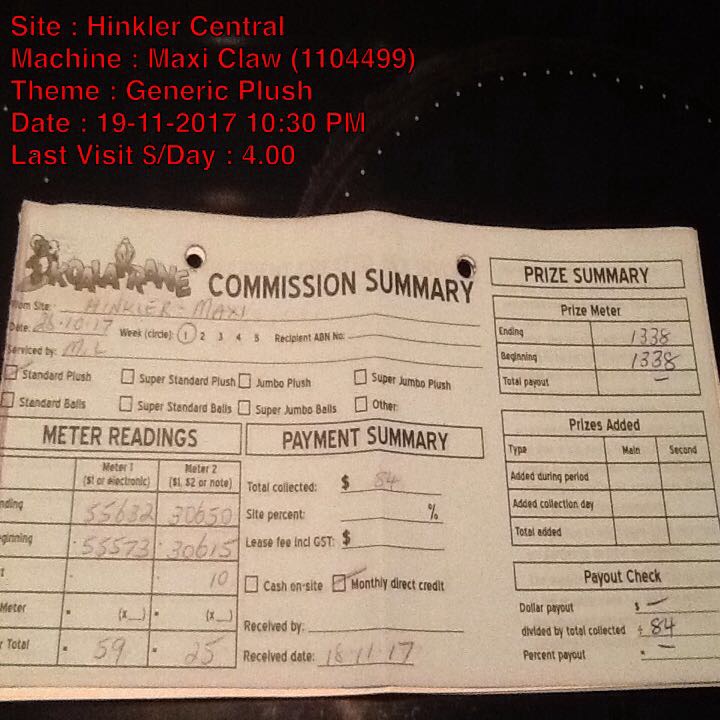 Site : Hinkler Central
Machine : Maxi Claw (1104499)
Theme : Generic Plush
Date : 19-11-2017 10:30 PM
Last Visit $/Day : 4.00
KOALA KRANE
COMMISSION SUMMARY
om Site: HINKLER - MAXI
Date: 10-17 Week (circle): 1 2 3 4 5 Recipient ABN No:
Serviced by: M.L
Standard Plush Super Standard Plush Jumbo Plush Super Jumbo Plush
Standard Balls Super Standard Balls Super Jumbo Balls Other:
METER READINGS
Meter 1 Meter 2
($1 or electronic) ($1, $2 or note)
nding 55632 30650
ginning 55573 30615
t 10
Meter (x__) (x__)
r Total 59 25
PAYMENT SUMMARY
Total collected: $ 84
Site percent: %
Lease fee incl GST: $
Cash on-site Monthly direct credit
Received by:
Received date: 18-11-17
PRIZE SUMMARY
Prize Meter
Ending 1338
Beginning 1338
Total payout –
Prizes Added
Type Main Second
Added during period
Added collection day
Total added
Payout Check
Dollar payout $ –
divided by total collected ÷ 84
Percent payout = –